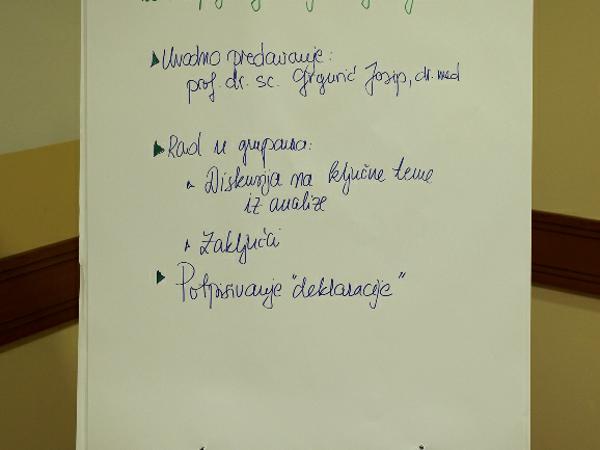 Uvodno predavanje:
prof. dr. sc. Grgurić Josip, dr. med
Rad u grupama:
Diskusija na ključne teme
iz analize
Zaključci
Potpisivanje "deklaracije"